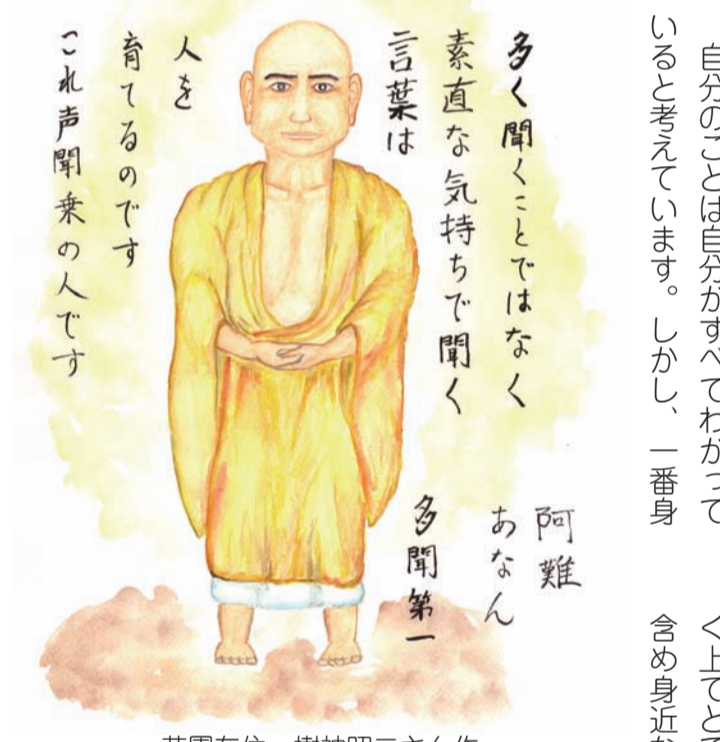 自分のことは自分がすべてわかって
いると考えています。しかし、一番身
含め身近な
多く聞くことではなく
素直な気持ちで聞く
言葉は
人を
育てるのです
これ声聞乗の人です
阿難
あなん
多聞第一